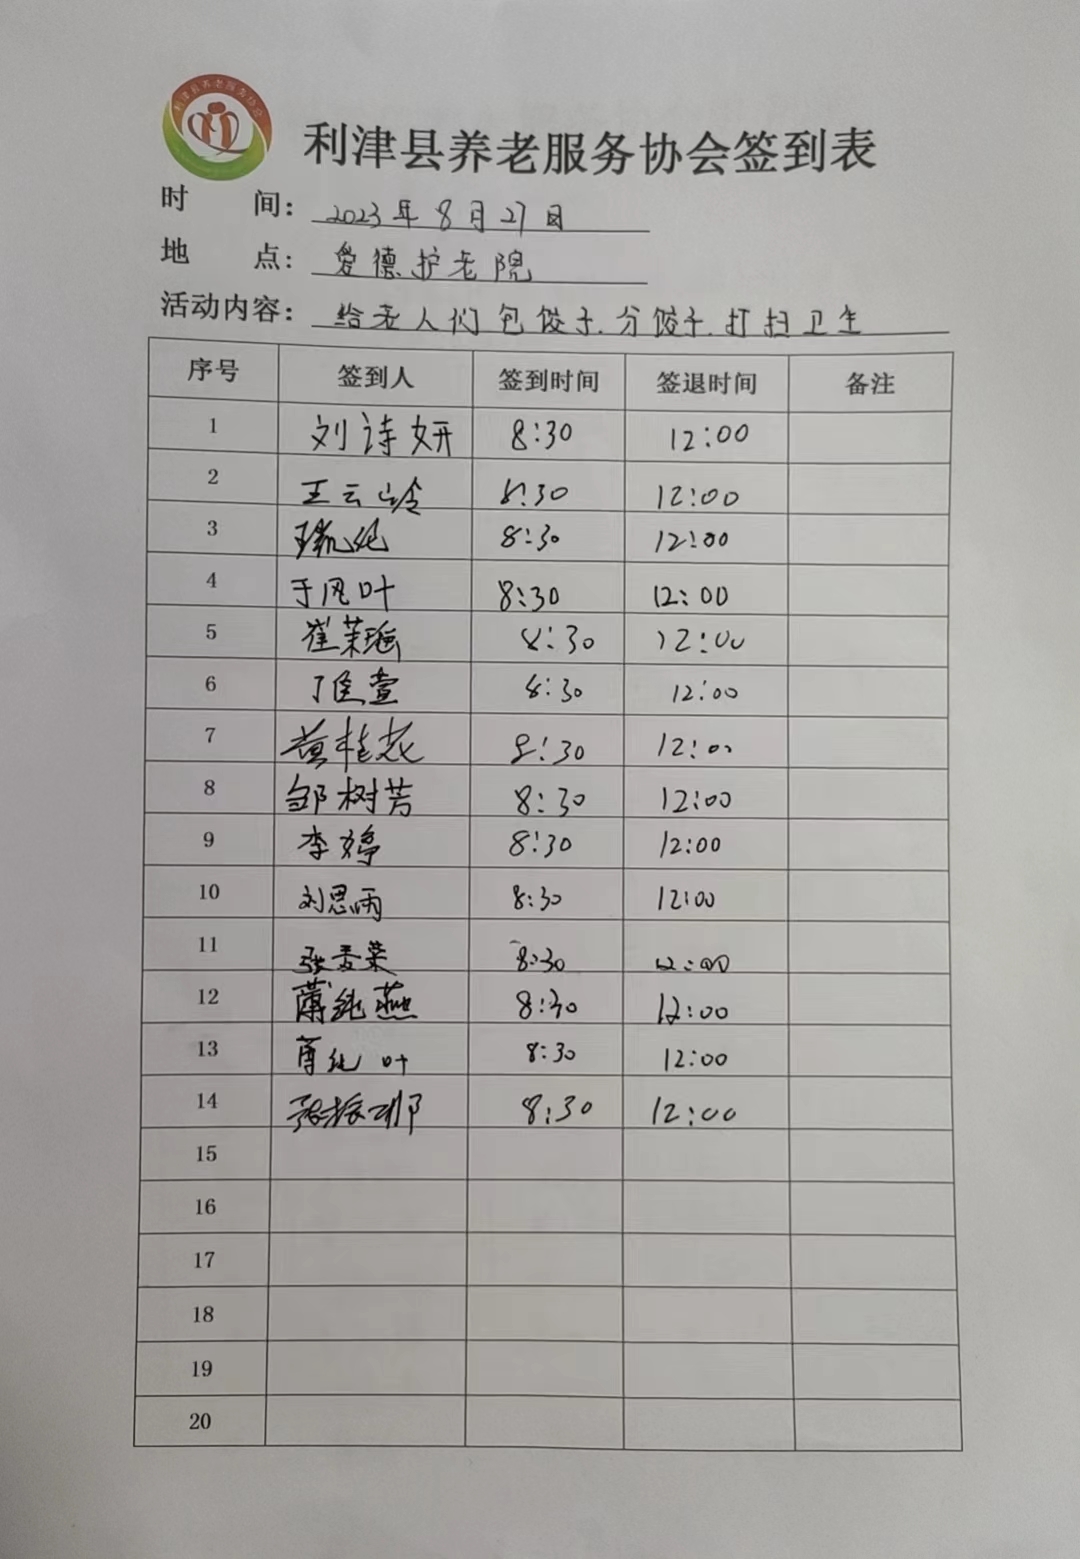 利津县养老服务协会
利津县养老服务协会签到表
时 间： 2023年8月27日
地 点： 爱德护老院
活动内容： 给老人们包饺子.分饺子.打扫卫生
序号 签到人 签到时间 签退时间 备注
1 刘诗妍 8:30 12:00
2 王云岭 8:30 12:00
3 8:30 12:00
4 于风叶 8:30 12:00
5 崔茉瑶 8:30 12:00
6 丁佳萱 8:30 12:00
7 黄桂花 8:30 12:00
8 邹树芳 8:30 12:00
9 李婷 8:30 12:00
10 刘思雨 8:30 12:00
11 张秀荣 8:30 12:00
12 薄纯燕 8:30 12:00
13 叶 8:30 12:00
14 张振 8:30 12:00
15
16
17
18
19
20